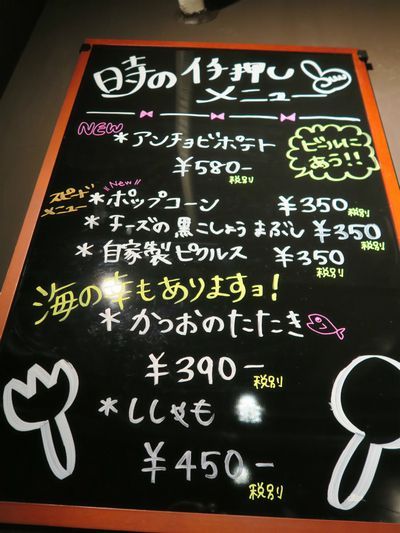 時のイチ押し
メニュー
NEW
*アンチョビポテト
¥580-
税別
ビールに
あう!!
スピード
メニュー
"New"
*ポップコーン ¥350
税別
*チーズの黒こしょうまぶし ¥350
税別
*自家製ピクルス ¥350
税別
海の幸もありますョ!
*かつおのたたき
¥390-
税別
*ししゃも
¥450-
税別